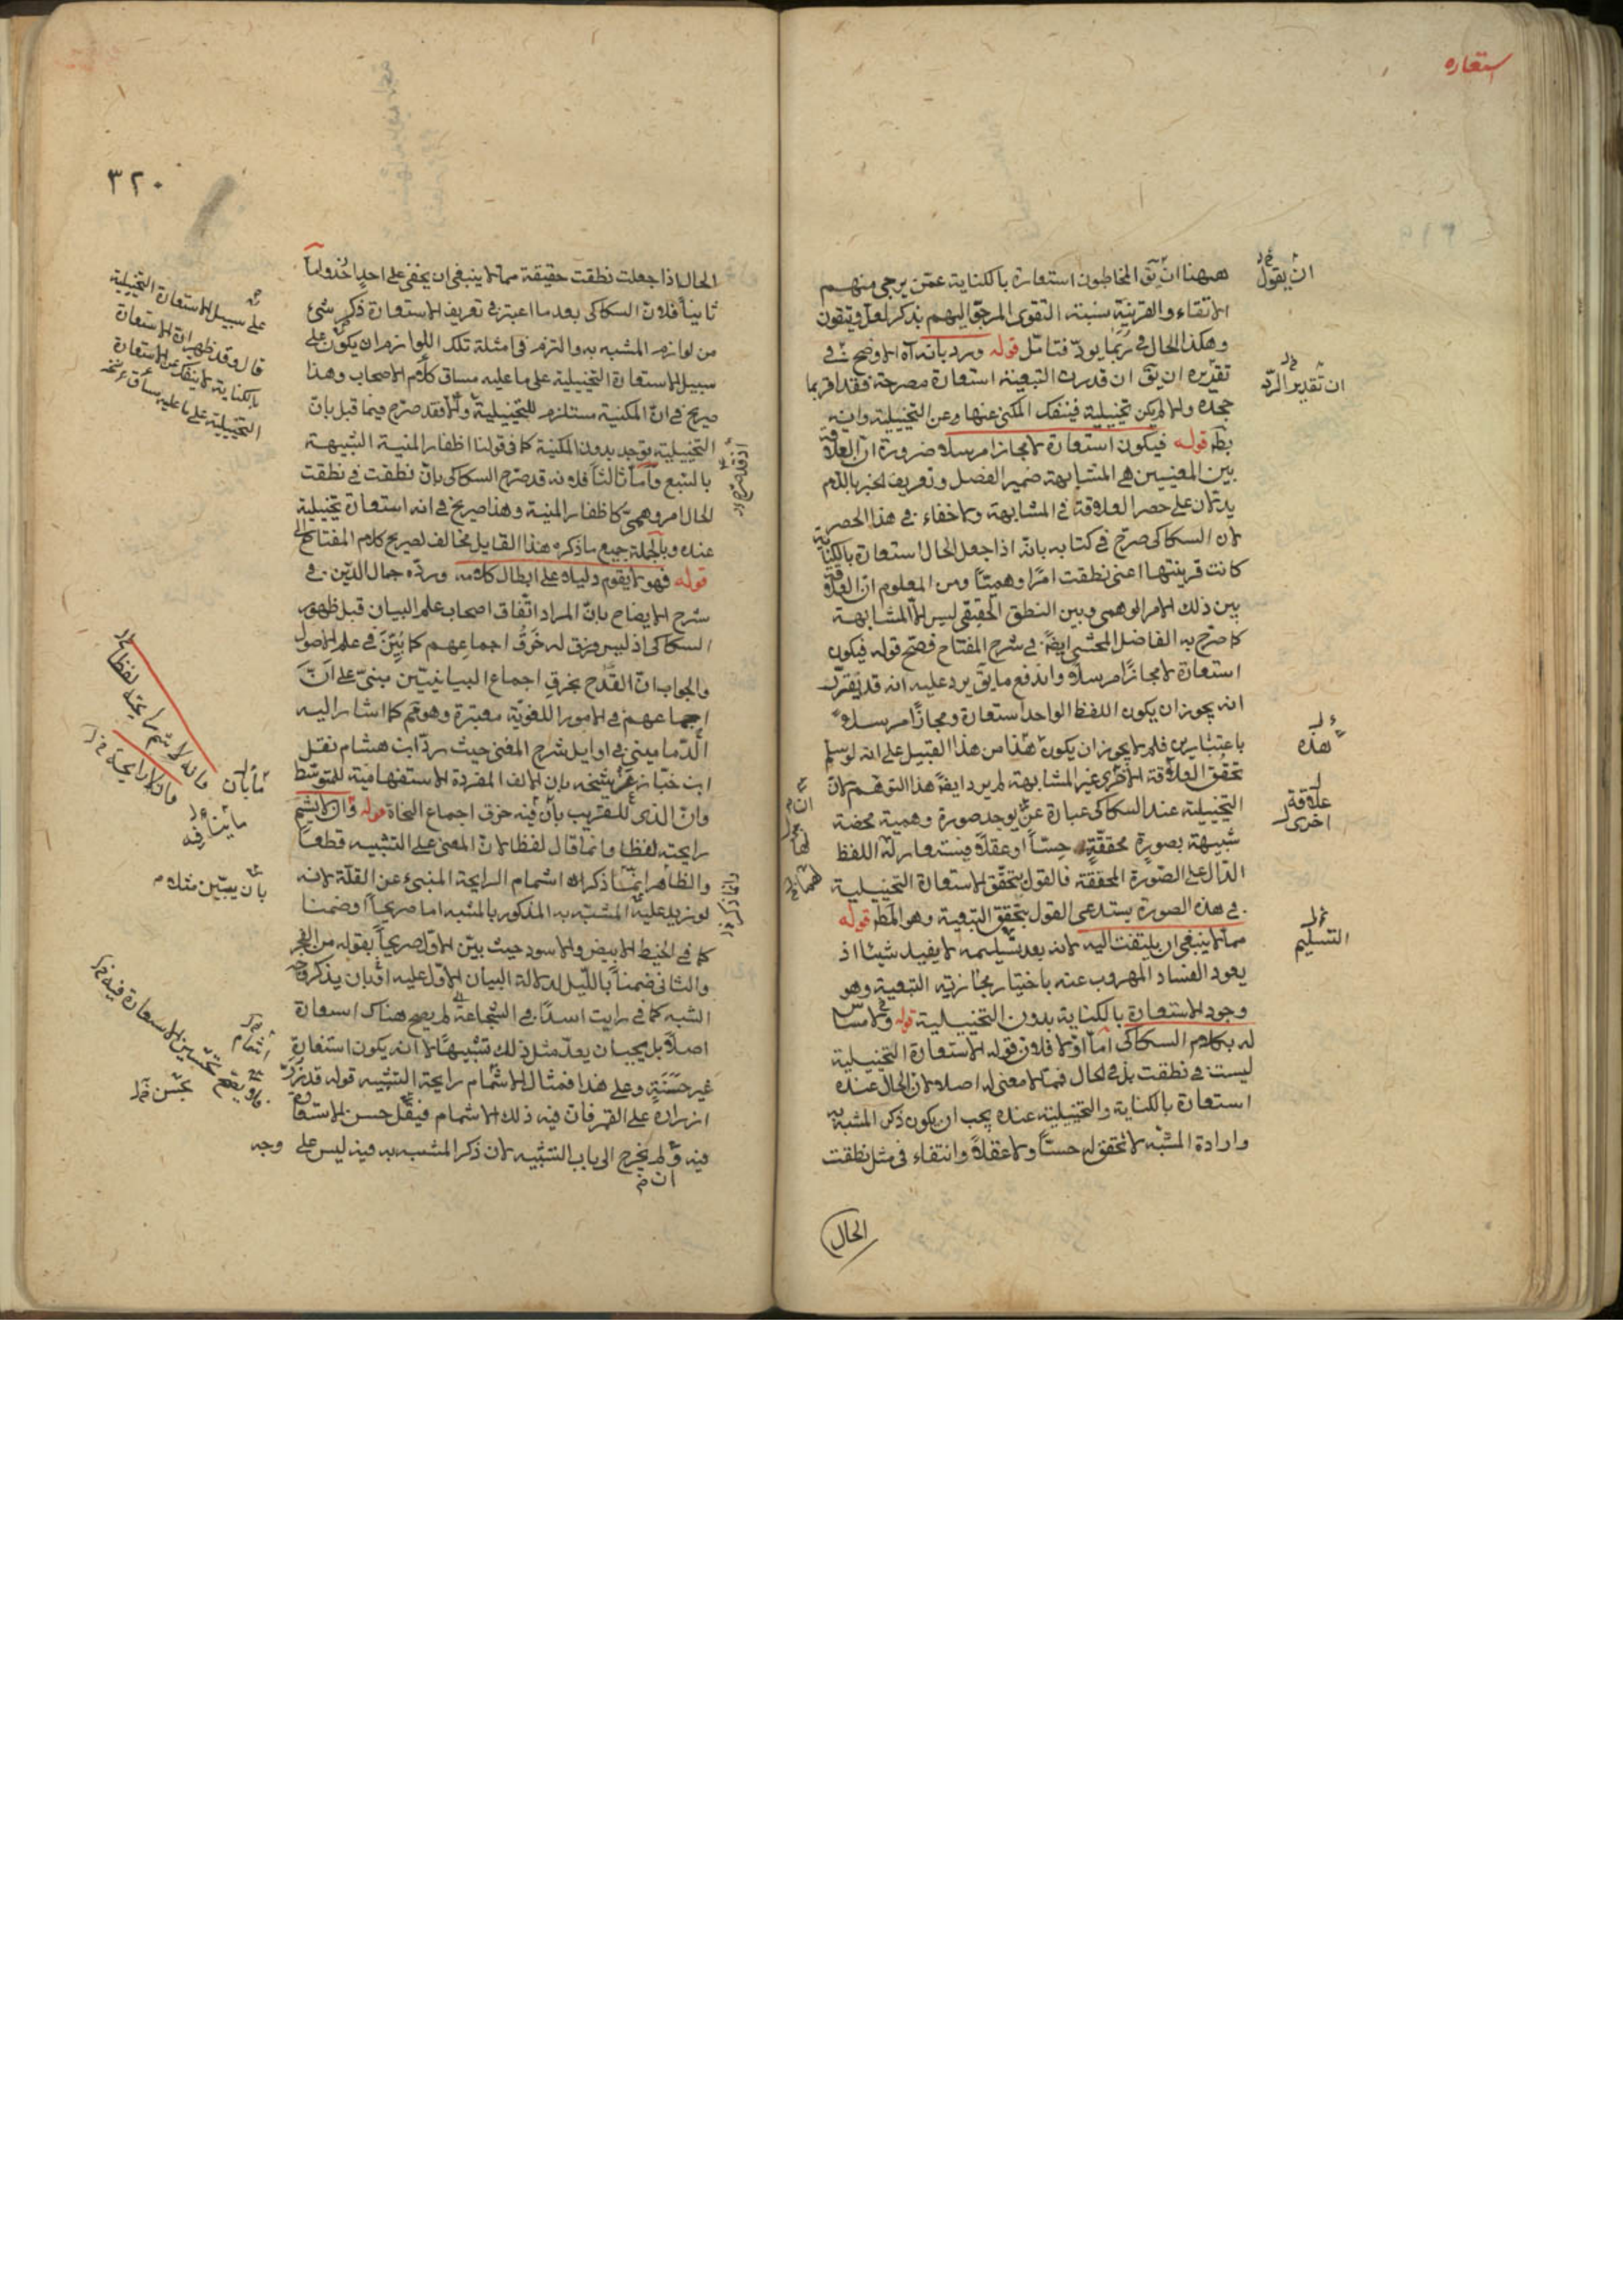 استعاره
ههنا ان يق المخاطبون استعارة بالكناية عمن يرجى منهم
الاتقاء والقرينة نسبته التقوى المرجو اليهم بذكر لعل وتتقون
وهكذا الحال في ربما يود فتامل قوله ورد بانه آه الاوضح في
تقريره ان يق ان قدرت التبعية استعارة مصرحة فقد اقر بما
جحده والا لم يكن تخييلية فينفك المكنى عنها عن التخييلية وانه
بط قوله فيكون استعارة لا مجازا مرسلا ضرورة ان العلاقة
بين المعنيين هي المشابهة ضمير الفصل وتعريف الخبر باللام
يدلان على حصر العلاقة في المشابهة ولا خفاء في هذا الحصر
لان السكاكى صرح في كتابه بانه اذا جعل الحال استعارة بالكناية
كانت قرينتها اعنى نطقت امرا وهميا ومن المعلوم ان العلاقة
بين ذلك الامر الوهمى وبين النطق الحقيقى ليس الا المشابهة
كما صرح به الفاضل المحشى ايضا في شرح المفتاح فصح قوله فيكون
استعارة لا مجازا مرسلا واندفع ما يق يرد عليه انه قد تقرر
انه يجوز ان يكون اللفظ الواحد استعارة ومجازا مرسلا
باعتبارين فلم لا يجوز ان يكون هذا من هذا القبيل على انه لو سلم
تحقق العلاقة الاخرى غير المشابهة لم يرد ايضا هذا التوهم لان
التخييلية عند السكاكى عبارة عن يوجد صورة وهمية محضة
شبيهة بصورة محققة حسا او عقلا فيستعار له اللفظ
الدال على الصورة المحققة فالقول بتحقق الاستعارة التخييلية
في هذه الصورة يستدعى القول بتحقق التبعية وهو المط قوله
مما لا ينبغى ان يلتفت اليه لانه بعد تسليمه لا يفيد شيئا اذ
يعود الفساد المهروب عنه باختيار مجازية التبعية وهو
وجود الاستعارة بالكناية بدون التخييلية قوله ولا مساس
له بكلام السكاكى اما اولا فلان قوله الاستعارة التخييلية
ليست في نطقت بل في الحال فما لا معنى له اصلا لان الحال عنده
استعارة بالكناية والتخييلية عنده يجب ان يكون ذكر المشبه به
وارادة المشبه لا تحقق له حسا ولا عقلا وانتفاء في مثل نطقت
الحال
ان يقول
ان تقدير الرد
هذه
علاقة
اخرى
التسليم
٣٢٠
الحال اذا جعلت نطقت حقيقة مما لا ينبغى ان يخفى على احد واما
ثانيا فلان السكاكى بعد ما اعتبر في تعريف الاستعارة ذكر شئ
من لوازم المشبه به والتزم في امثلة تلك اللوازم ان يكون على
سبيل الاستعارة التخييلية على ما عليه مساق كلام الاصحاب وهذا
صريح في ان المكنية مستلزم للتخييلية والا فقد صرح فيما قبل بان
التخييلية يوجد بدون المكنية كما في قولنا اظفار المنية الشبيهة
بالسبع واما ثالثا فلانه قد صرح السكاكى بان نطقت في نطقت
الحال امر وهمى كاظفار المنية وهذا صريح في انه استعارة تخييلية
عنده وبالجملة جميع ما ذكره هذا القايل مخالف لصريح كلام المفتاح
قوله فهو لا يقوم دليلا على ابطال كلامه ورده جمال الدين في
شرح الايضاح بان المراد اتفاق اصحاب علم البيان قبل ظهور
السكاكى اذ ليس خرق اجماعهم كما بين في علم الاصول
والجواب ان القدح بخرق اجماع البيانيين مبنى على ان
اجماعهم في الامور اللغوية معتبرة وهو كما اشار اليه
الدمامينى في اوايل شرح المغنى حيث رد ابن هشام نقل
ابن خباز عن شيخه بان الالف المفردة الاستفهامية للمتوسط
وان الذى للقريب بان فيه خرق اجماع النحاة قوله وان لا يشم
رايحته لفظا وانما قال لفظا لان المعنى على التشبيه قطعا
والظاهر انما ذكر اشمام الرايحة المنبئ عن القلة لانه
لو زيد عليه المشبه به المذكور بالمشبه اما صريحا او ضمنا
كما في الخيط الابيض والاسود حيث بين الاول صريحا بقوله من الفجر
والثانى ضمنا بالليل لدلالة البيان الاول عليه او بان يذكر وجه
الشبه كما في رايت اسدا في الشجاعة لم يصح هناك استعارة
اصلا بل يجب ان يعد مثل ذلك تشبيها لا ان يكون استعارة
غير حسنة وعلى هذا فمثال الاشمام رايحة التشبيه قوله قد زر
ازراره على القمر فان فيه ذلك الاشمام فيقل حسن الاستعارة
فيه ولم يخرج الى باب التشبيه لان ذكر المشبه به فيه ليس على وجه
على سبيل الاستعارة التخييلية
قال وقد ظهر ان الاستعارة
بالكناية لا ينفك عن الاستعارة
التخييلية على ما عليه مساق
بان يبين مثلا